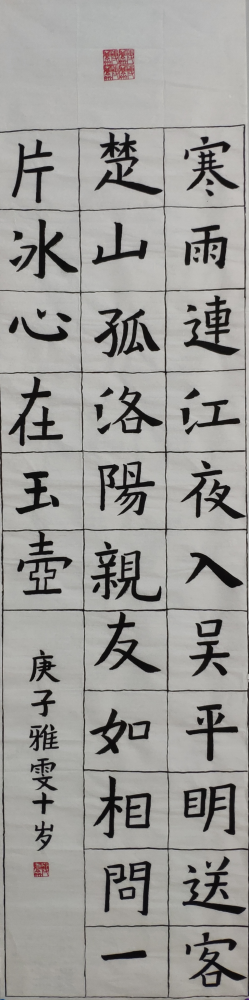 寒雨連江夜入吴平明送客
楚山孤洛陽親友如相問一
片冰心在玉壺
庚子雅雯十岁